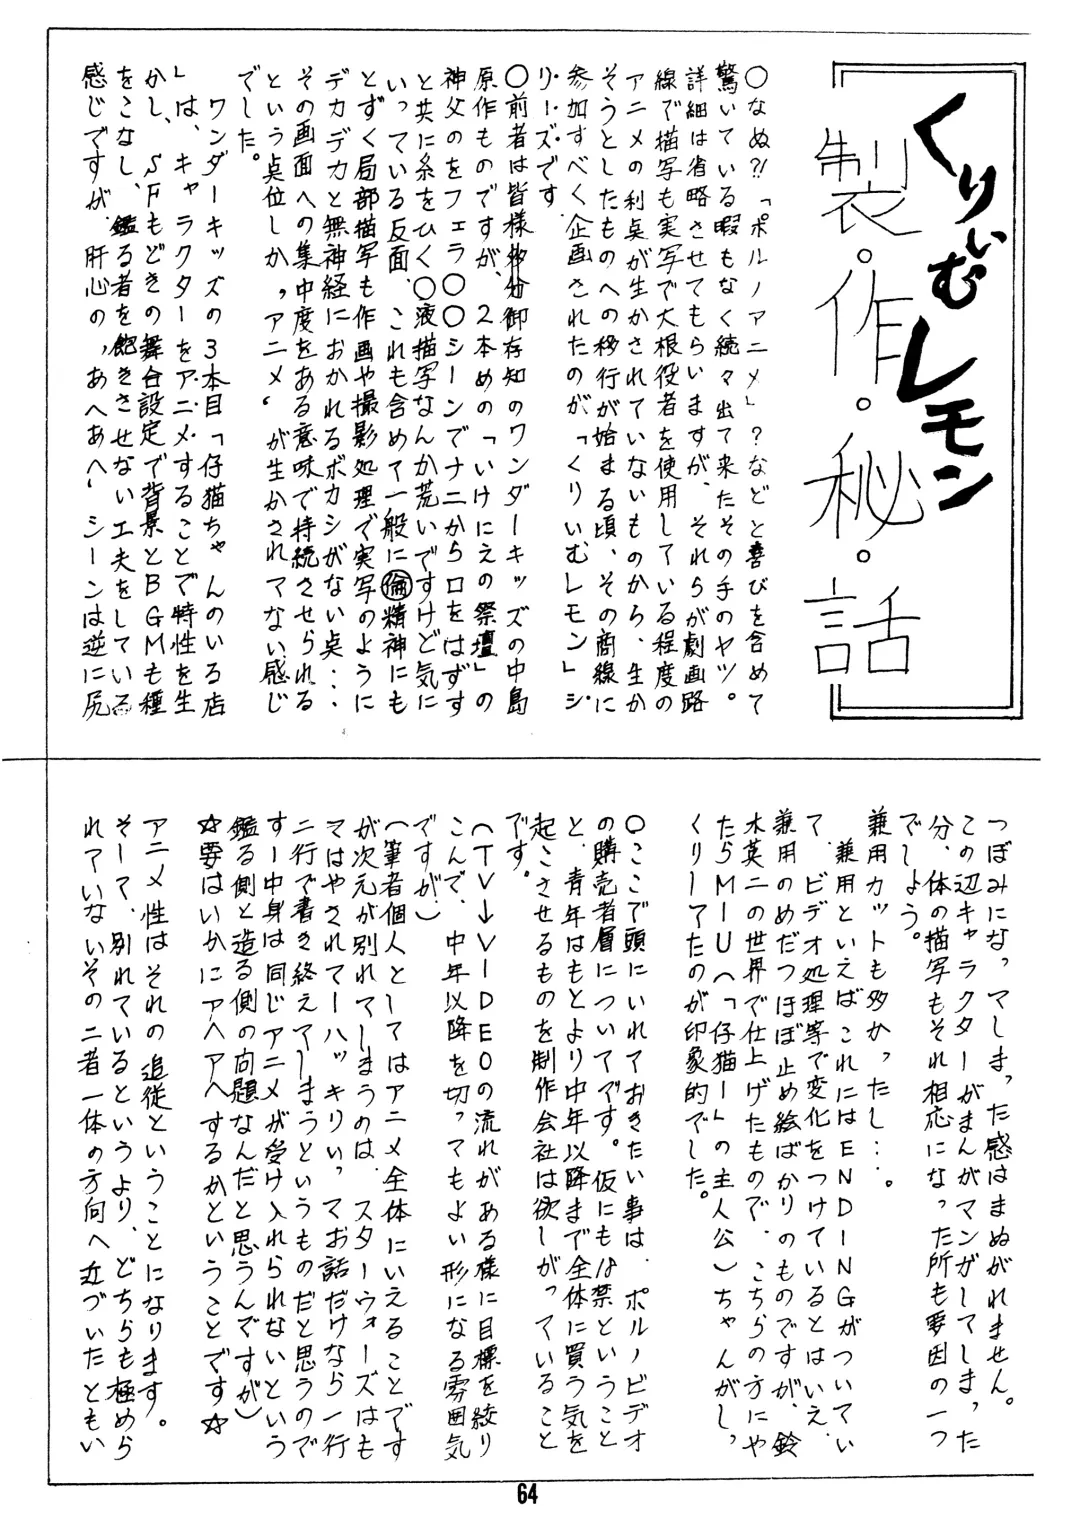 くりぃむレモン
製。作。秘。話
○なぬ?!「ポルノアニメ」?などと喜びを含めて
驚いている暇もなく続々出て来たその手のヤツ。
詳細は省略させてもらいますが、それらが劇画路
線で描写も実写で大根役者を使用している程度の
アニメの利点が生かされていないものから、生か
そうとしたものへの移行が始まる頃、その商線に
参加すべく企画されたのが「くりいむレモン」シ
リーズです
○前者は皆様多分御存知のワンダーキッズの中島
原作ものですが、2本めの「いけにえの祭壇」の
神父のをフェラ○○シーンでナニから口をはずす
と共に糸をひく○液描写なんか荒いですけど気に
いっている反面、これも含めて一般に倫精神にも
とずく局部描写も作画や撮影処理で実写のように
デカデカと無神経におかれるボカシがない点…
その画面への集中度をある意味で持続させられる
という点位しか〝アニメ〟が生かされてない感じ
でした。
ワンダーキッズの3本目「仔猫ちゃんのいる店
」は、キャラクターをアニメすることで特性を生
かし、SFもどきの舞台設定で背景とBGMも種
をこなし、鑑る者を飽きさせない工夫をしている
感じですが、肝心の〝あへあへ〟シーンは逆に尻
つぼみになってしまった感はまぬがれません。
この辺キャラクターがまんがマンガしてしまった
分、体の描写もそれ相応になった所も要因の一つ
でしょう。
兼用カットも多かったし…。
兼用といえばこれにはENDINGがついてい
て、ビデオ処理等で変化をつけているとはいえ、
兼用のめだつほぼ止め絵ばかりのものですが、鈴
木英二の世界で仕上げたもので、こちらの方にや
たらMーU(「仔猫ー」の主人公)ちゃんがしっ
くりしてたのが印象的でした。
○ここで頭にいれておきたい事は、ポルノビデオ
の購売者層についてです。仮にも18禁ということ
と、青年はもとより中年以降まで全体に買う気を
起こさせるものを制作会社は欲しがっていること
です。
(TV→VIDEOの流れがある様に目標を絞り
こんで、中年以降を切ってもよい形になる雰囲気
ですが)
(筆者個人としてはアニメ全体にいえることです
が次元が別れてしまうのは、スターウォーズはも
てはやされてーハッキリいってお話だけなら一行
二行で書き終えてしまうというものだと思うので
すー中身は同じアニメが受け入れられないという
鑑る側と造る側の問題なんだと思うんですが)
☆要はいかにアヘアヘするかということです☆
アニメ性はそれの追従ということになります。
そして、別れているというより、どちらも極めら
れていないその二者一体の方向へ近づいたともい
64